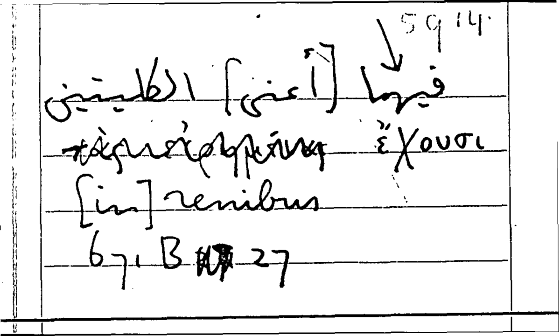 5914.
فيهما [أعني] الكليتين
ἔχουσι
[in] renibus
671 B 27